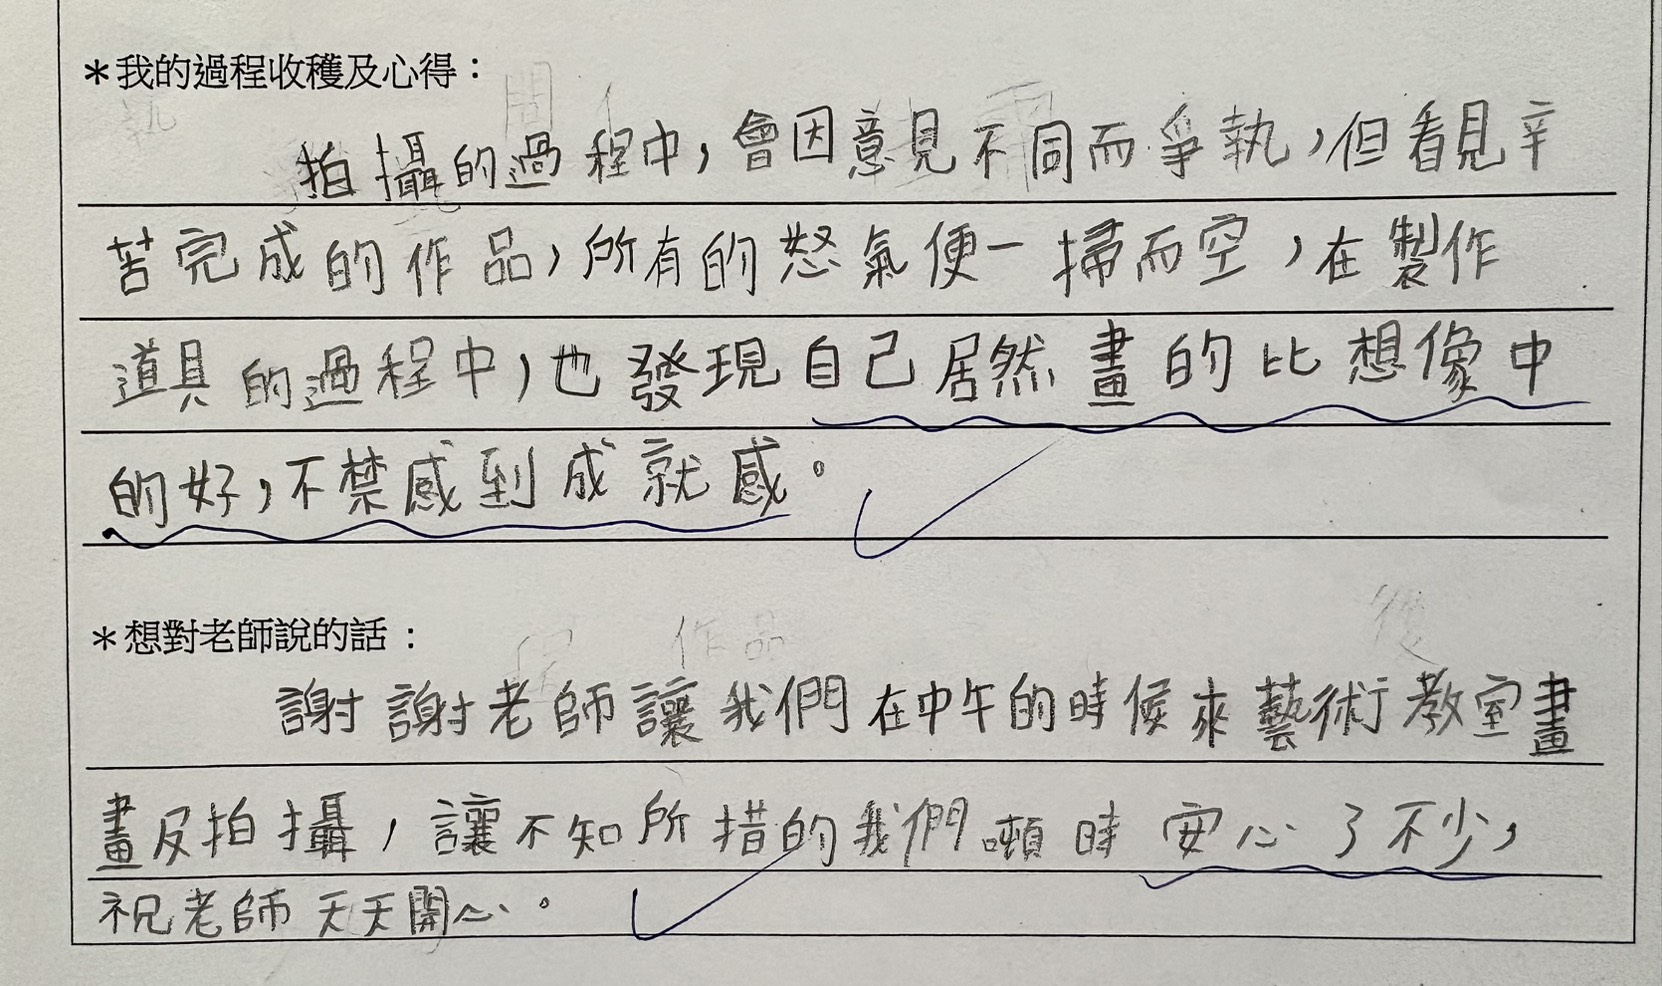 ＊我的過程收穫及心得：
拍攝的過程中，會因意見不同而爭執，但看見辛
苦完成的作品，所有的怒氣便一掃而空，在製作
道具的過程中，也發現自己居然畫的比想像中
的好，不禁感到成就感。
＊想對老師說的話：
謝謝老師讓我們在中午的時候來藝術教室畫
畫及拍攝，讓不知所措的我們噸時安心了不少，
祝老師天天開心。